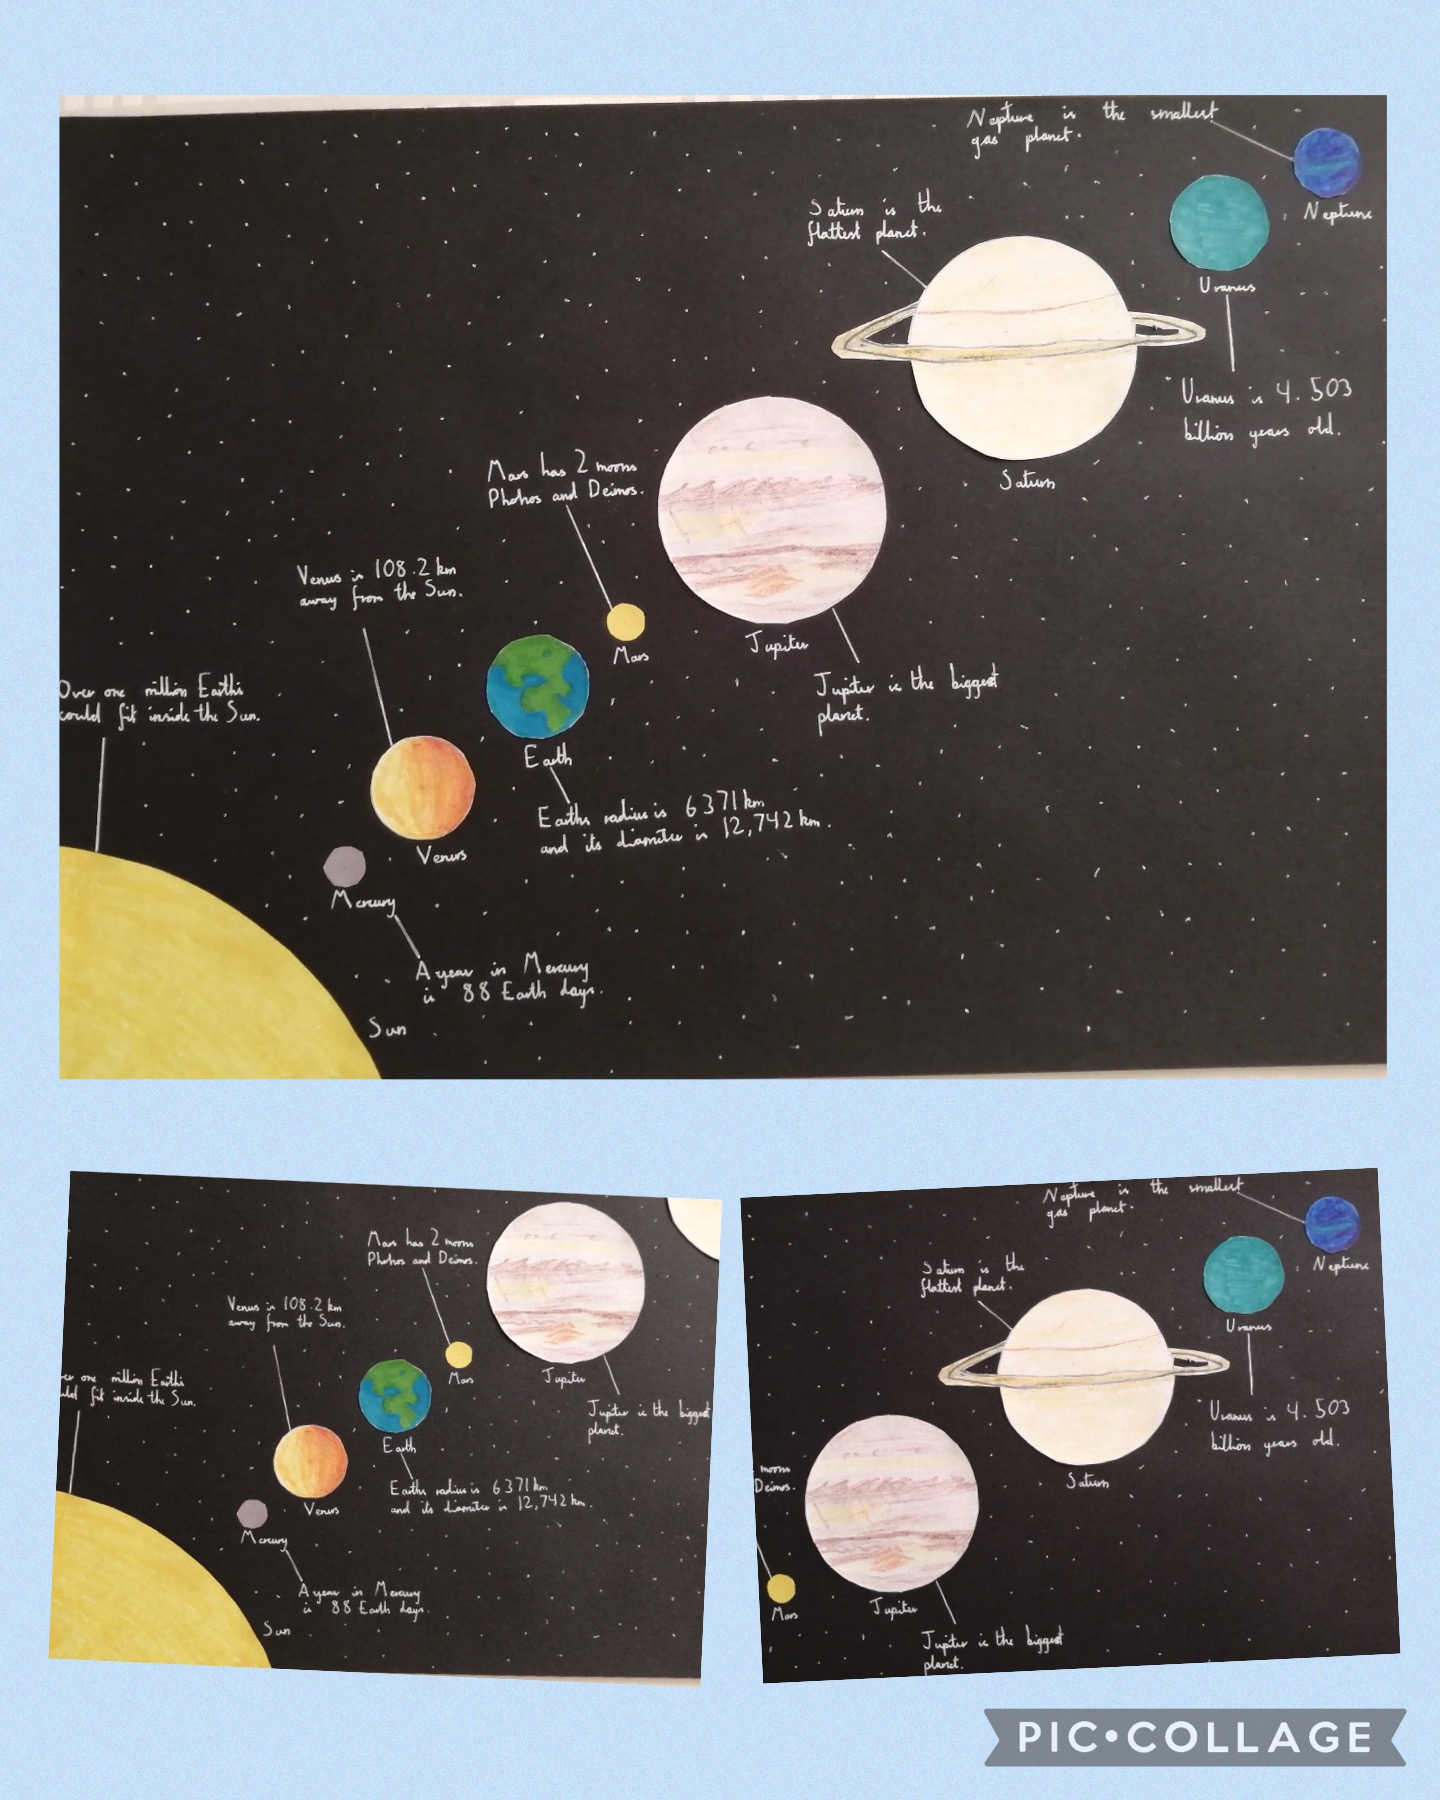 Neptune is the smallest
gas planet.
Neptune
Saturn is the
flattest planet.
Uranus
Uranus is 4.503
billion years old.
Saturn
Mars has 2 moons
Phohos and Deimos.
Mars
Jupiter
Jupiter is the biggest
planet.
Venus is 108.2 km
away from the Sun.
Earth
Earths radius is 6371 km
and its diameter is 12,742 km.
Over one million Earths
could fit inside the Sun.
Venus
Mercury
A year in Mercury
is 88 Earth days.
Sun
Mars has 2 moons
Phohos and Deimos.
Venus is 108.2 km
away from the Sun.
Mars
Jupiter
Jupiter is the biggest
planet.
er one million Earths
uld fit inside the Sun.
Earth
Earths radius is 6371 km
and its diameter is 12,742 km.
Venus
Mercury
A year in Mercury
is 88 Earth days.
Sun
Neptune is the smallest
gas planet.
Neptune
Saturn is the
flattest planet.
Uranus
Uranus is 4.503
billion years old.
Saturn
moons
Deimos.
Mars
Jupiter
Jupiter is the biggest
planet.
PIC•COLLAGE